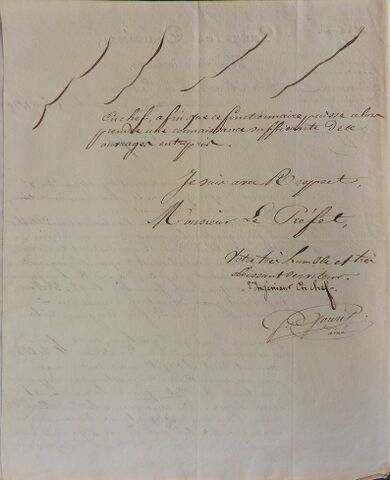 En chef, afin que ce fonctionnaire puisse alors
prendre une connaissance suffisante de ce
ouvrages entrepris.
Je suis avec Respect,
Monsieur Le Préfet,
Votre très humble et très
obéissant serviteur.
L'Ingénieur En chef
ainé